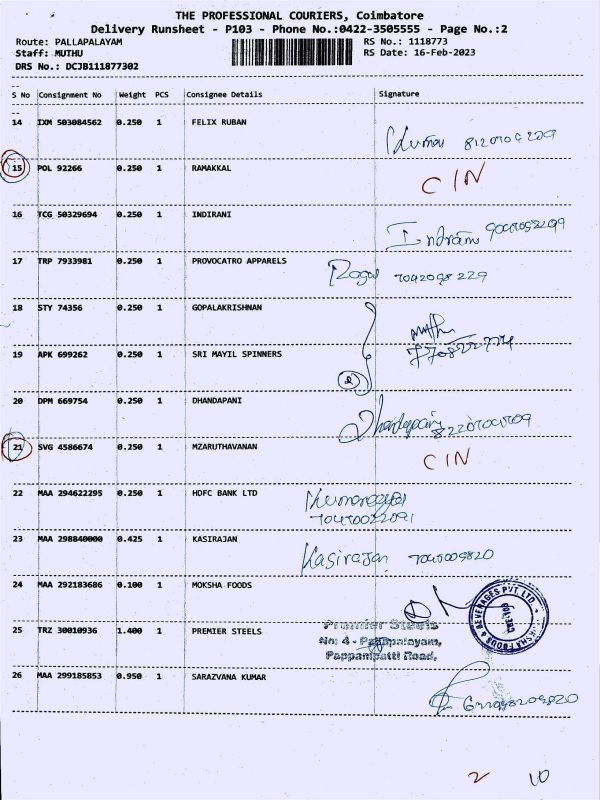 THE PROFESSIONAL COURIERS, Coimbatore
Delivery Runsheet - P103 - Phone No.:0422-3505555 - Page No.:2
Route: PALLAPALAYAM RS No.: 1118773
Staff: MUTHU RS Date: 16-Feb-2023
DRS No.: DCJB111877302
S No Consignment No Weight PCS Consignee Details Signature
14 IXM 503084562 0.250 1 FELIX RUBAN
15 POL 92266 0.250 1 RAMAKKAL CIN
16 TCG 50329694 0.250 1 INDIRANI Indrani
17 TRP 7933981 0.250 1 PROVOCATRO APPARELS 7042098229
18 STY 74356 0.250 1 GOPALAKRISHNAN
19 APK 699262 0.250 1 SRI MAYIL SPINNERS
2
20 DPM 669754 0.250 1 DHANDAPANI Dhandapani
21 SVG 4586674 0.250 1 MZARUTHAVANAN CIN
22 MAA 294622295 0.250 1 HDFC BANK LTD
23 MAA 298840000 0.425 1 KASIRAJAN Kasirajan
24 MAA 292183686 0.100 1 MOKSHA FOODS
25 TRZ 30010936 1.400 1 PREMIER STEELS Premier Steels
No: 4 - Pallapalayam,
Pappampatti Road,
26 MAA 299185853 0.950 1 SARAZVANA KUMAR
2 10